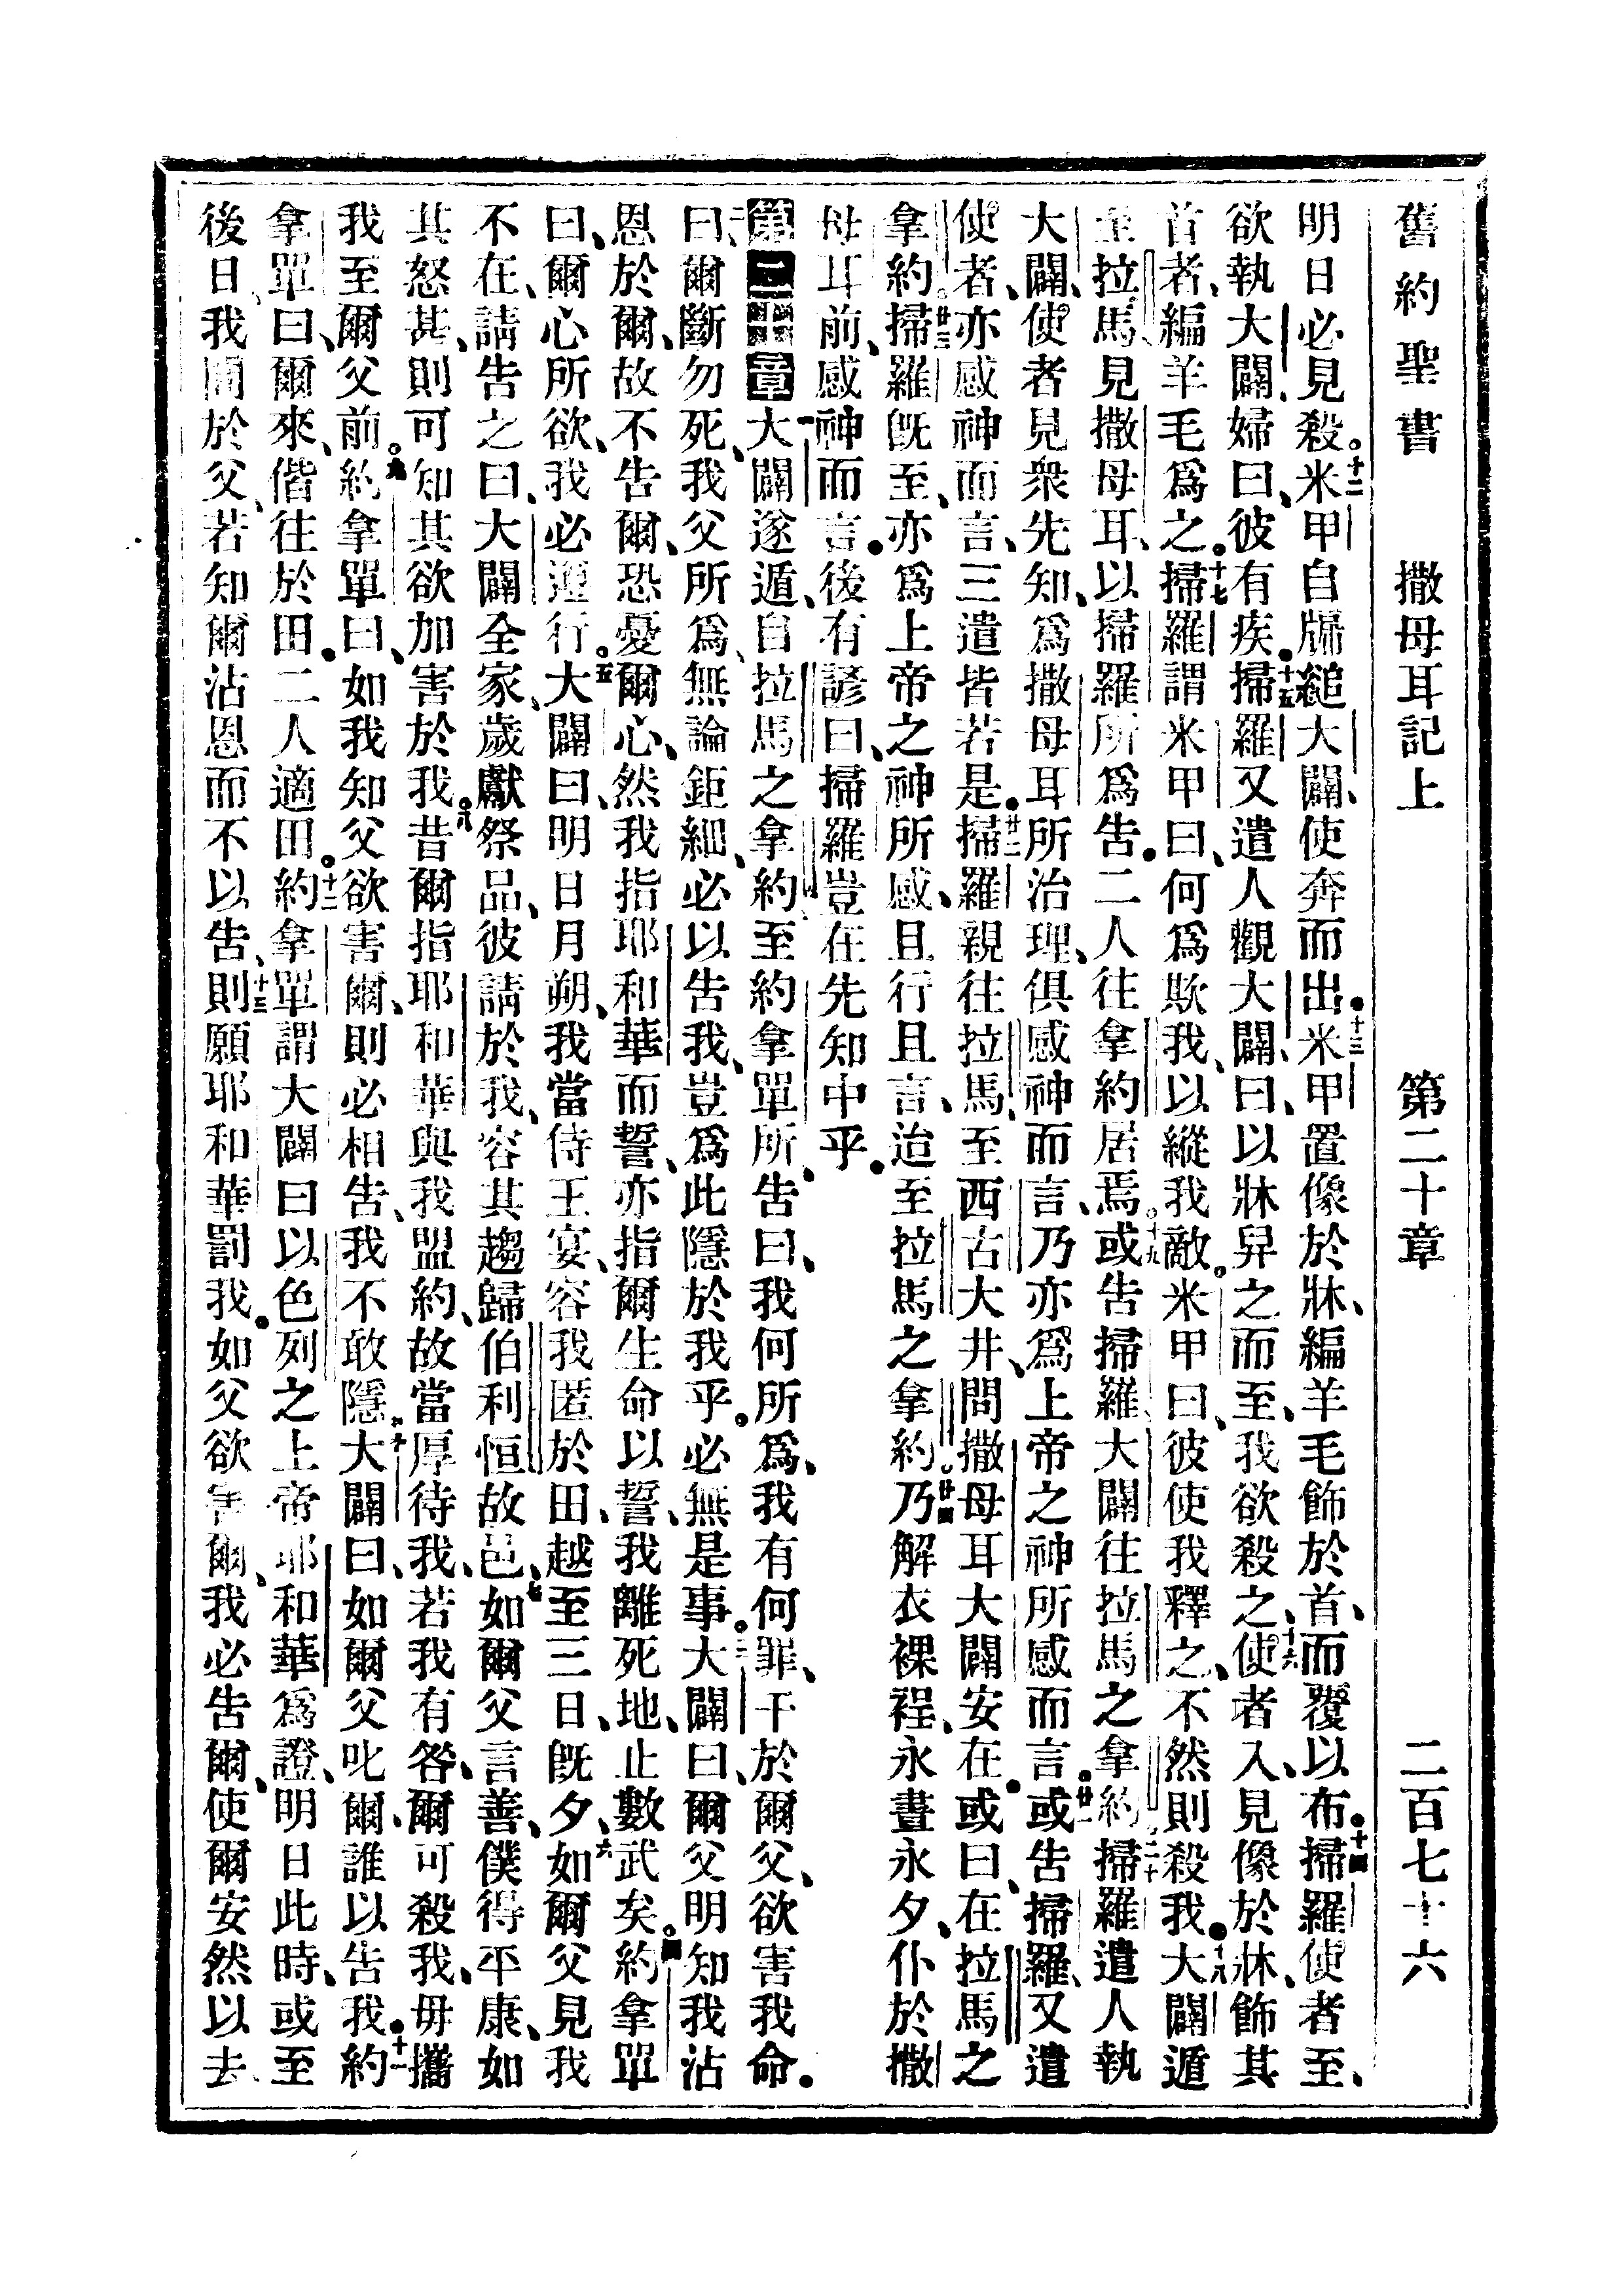 舊約聖書 撒母耳記上 第二十章 二百七十六
明日必見殺。十二米甲自牖縋大闢、使奔而出。十三米甲置像於牀、編羊毛飾於首、而覆以布。十四掃羅使者至、
欲執大闢、婦曰、彼有疾。十五掃羅又遣人觀大闢、曰、以牀舁之而至、我欲殺之、十六使者入、見像於牀、飾其
首者、編羊毛爲之。十七掃羅謂米甲曰、何爲欺我、以縱我敵。米甲曰、彼使我釋之、不然則殺我。十八大闢遁
至拉馬、見撒母耳、以掃羅所爲告。二人往拿約居焉、十九或告掃羅、大闢往拉馬之拿約、二十掃羅遣人執
大闢、使者見衆先知、爲撒母耳所治理、俱感神而言、乃亦爲上帝之神所感而言。廿一或告掃羅、又遣
使者、亦感神而言、三遣皆若是。廿二掃羅親往拉馬、至西古大井、問撒母耳大闢安在。或曰、在拉馬之
拿約。廿三掃羅旣至、亦爲上帝之神所感、且行且言、迨至拉馬之拿約。廿四乃解衣裸裎、永晝永夕、仆於撒
母耳前、感神而言。後有諺曰、掃羅豈在先知中乎。
第二十章 一大闢遂遁、自拉馬之拿約至約拿單所、告曰、我何所爲、我有何罪、干於爾父、欲害我命。
二曰、爾斷勿死、我父所爲、無論鉅細、必以告我、豈爲此隱於我乎。必無是事。三大闢曰、爾父明知我沾
恩於爾、故不告爾、恐憂爾心、然我指耶和華而誓、亦指爾生命以誓、我離死地、止數武矣。四約拿單
曰、爾心所欲、我必遵行。五大闢曰、明日月朔、我當侍王宴、容我匿於田、越至三日、旣夕、六如爾父見我
不在、請告之曰、大闢全家、歲獻祭品、彼請於我、容其趨歸伯利恒故邑、七如爾父言善、僕得平康、如
其怒甚、則可知其欲加害於我。八昔爾指耶和華與我盟約、故當厚待我、若我有咎、爾可殺我、毋攜
我至爾父前。九約拿單曰、如我知父欲害爾、則必相告、我不敢隱。十大闢曰、如爾父叱爾、誰以告我。十一約
拿單曰、爾來、偕往於田。二人適田。十二約拿單謂大闢曰、以色列之上帝耶和華爲證、明日此時、或至
後日、我問於父、若知爾沾恩而不以告、十三則願耶和華罰我。如父欲害爾、我必告爾、使爾安然以去、